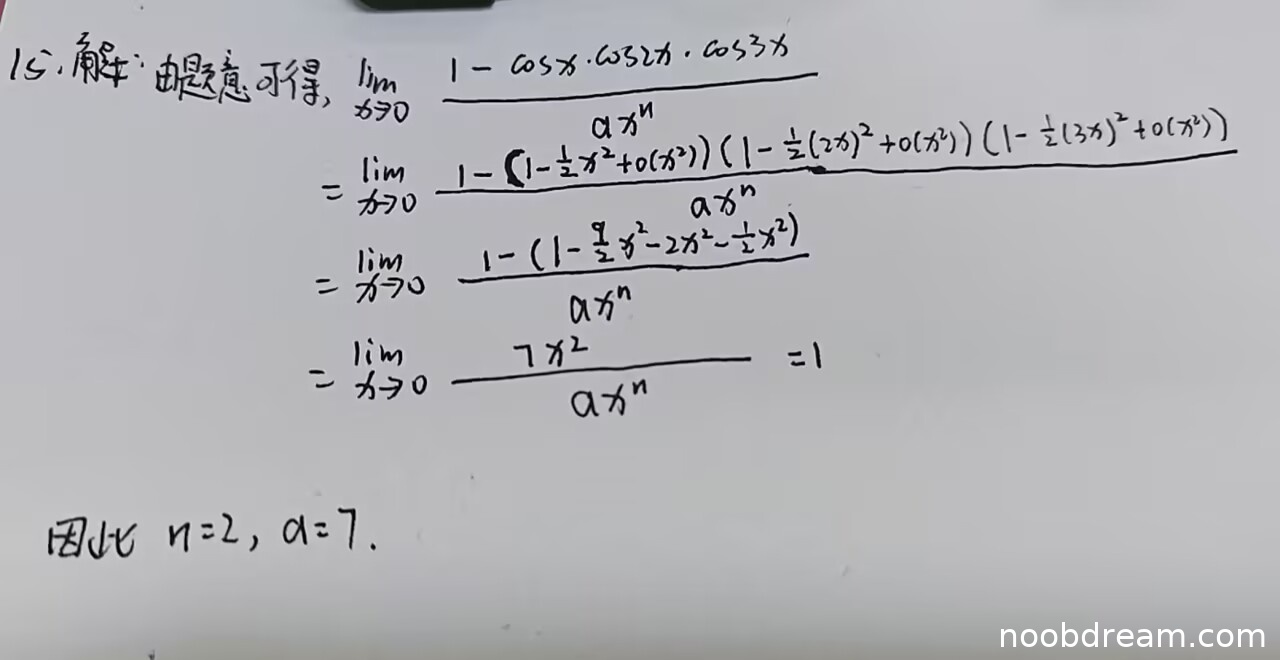 15. 解: 由题意可得, lim x→0 (1 - cosx·cos2x·cos3x)/(ax^n)
= lim x→0 (1 - (1 - 1/2 x² + o(x²))(1 - 1/2 (2x)² + o(x²))(1 - 1/2 (3x)² + o(x²)))/(ax^n)
= lim x→0 (1 - (1 - 9/2 x² - 2x² - 1/2 x²))/(ax^n)
= lim x→0 (7x²)/(ax^n) = 1
因此 n=2, a=7.
noobdream.com